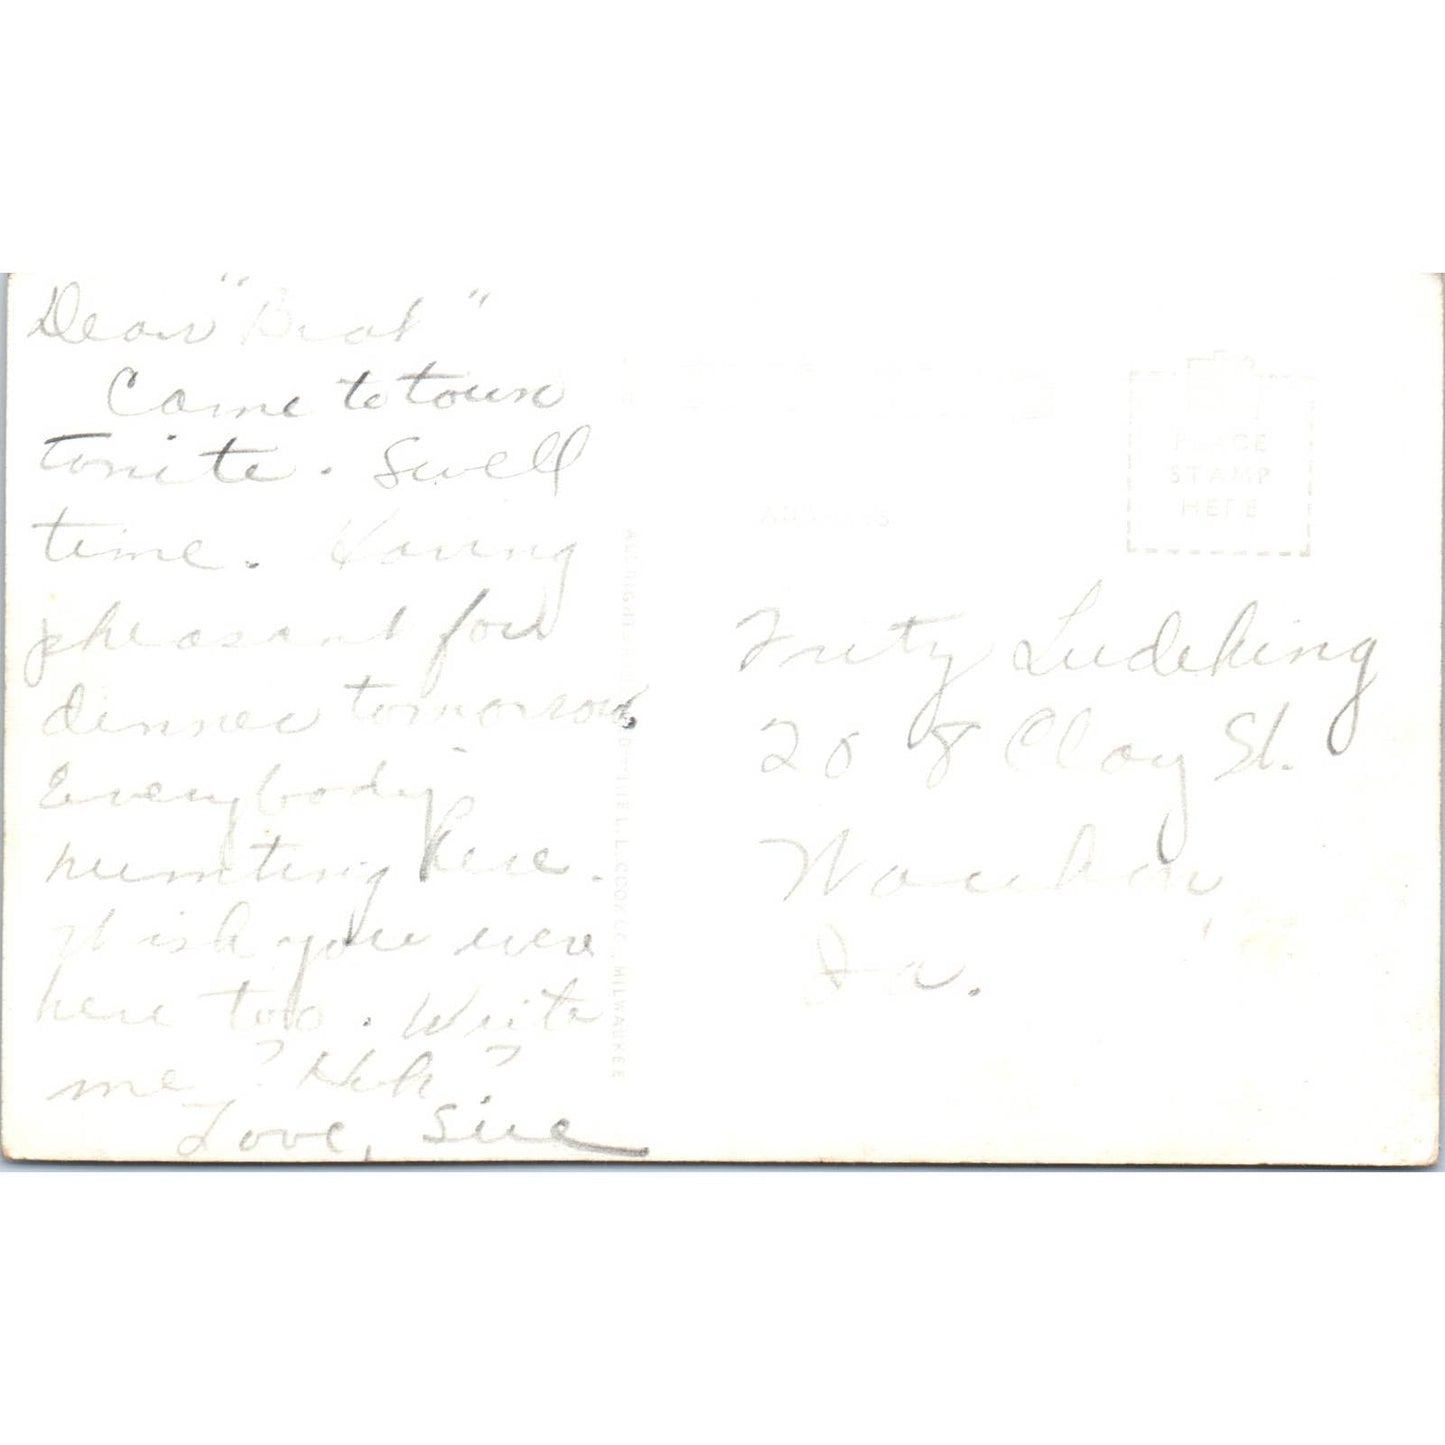 Dear "Brat"
Came to town
tonite. Swell
time. Having
pheasant for
dinner tomorrow
Everybody
hunting here.
Wish you were
here too. Write
me? Huh?
Love, Sue
PLACE
STAMP
HERE
ADDRESS
Fritz Ludeking
208 Clay St.
Waukon,
Ia.
ALL RIGHTS RESERVED-THE L.L. COOK CO., MILWAUKEE